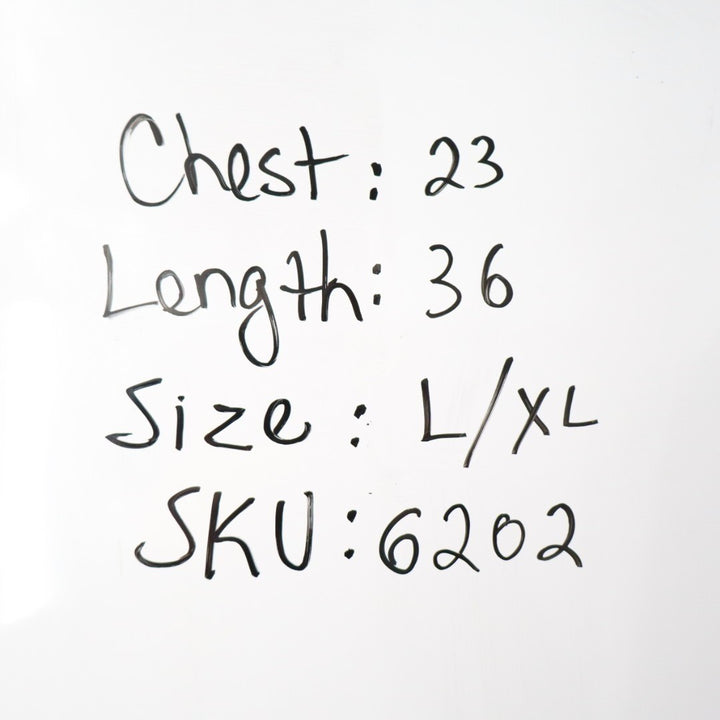 Chest: 23
Length: 36
Size: L/XL
SKU: 6202